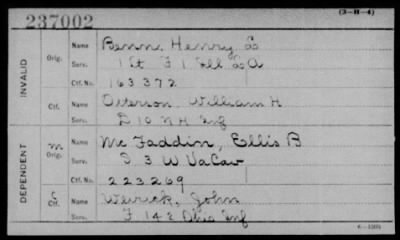 237002
(3—H—4)
INVALID
Orig. Name Benn, Henry L
Serv. 1 Lt F 1 Ill L A
Ctf. No. 163372
Ctf. Name Otterson, William H
Serv. D 10 N H Inf
DEPENDENT
M Orig. Name Mc Faddin, Ellis B
Serv. S 3 W Va Cav
Ctf. No. 223269
C Ctf. Name Weirick, John
Serv. F 142 Ohio Inf